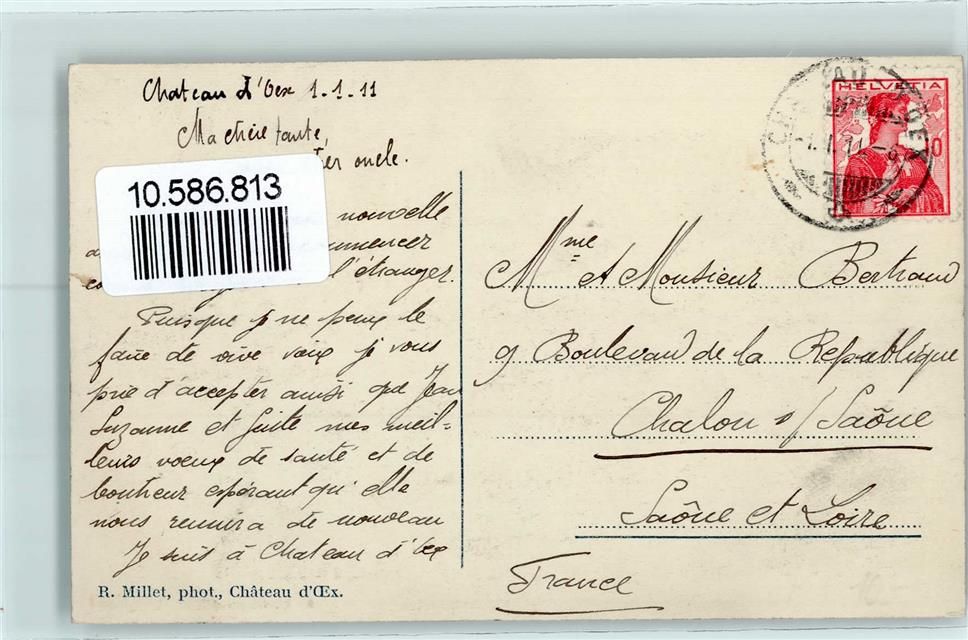 Chateau d'Oex 1-1-11
Ma chère tante,
oncle.
10.586.813
nouvelle
l'étranger.
Puisque je ne peux le
faire de vive voix je vous
prie d'accepter ainsi que Jean
Suzanne et mes meil-
leurs voeux de santé et de
bonheur espérant qu'elle
nous reunira de nouveau
Je suis à Chateau d'Oex
R. Millet, phot., Château d'Œx.
HELVETIA
Mme et Monsieur Bertrand
9 Boulevard de la Republique
Chalon s/ Saône
Saône et Loire
France